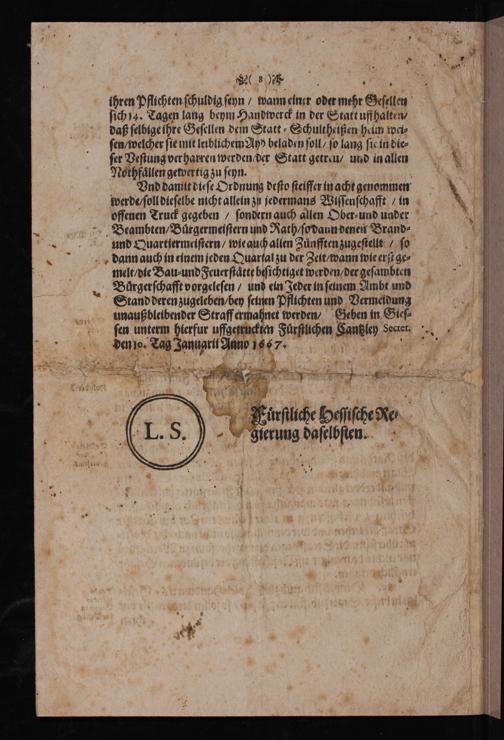 ( 8 )
ihren Pflichten schuldig seyn / wann einer oder mehr Gesellen
sich 14. Tagen lang beym Handwerck in der Statt uffhalten /
daß selbige ihre Gesellen dem Statt-Schultheißen heim wei-
sen / welcher sie mit leiblichem Ayd beladen soll / so lang sie in die-
ser Vestung verharren werden / der Statt getreu / und in allen
Nothfällen gewertig zu seyn.
Und damit diese Ordnung desto steiffer in acht genommen
werde / soll dieselbe nicht allein zu jedermans Wissenschafft / in
offenen Truck gegeben / sondern auch allen Ober- und under
Beambten / Bürgermeistern und Rath / so dann denen Brand-
und Quartiermeistern / wie auch allen Zünfften zugestellt / so
dann auch in einem jeden Quartal zu der Zeit / wann wie erst ge-
melt / die Bau- und Feuerstätte besichtiget werden / der gesambten
Bürgerschafft vorgelesen / und ein Jeder in seinem Ambt und
Stand deren zugeleben / bey seinen Pflichten und Vermeidung
unaußbleibender Straff ermahnet werden / Geben in Gies-
sen unterm hierfur uffgetruckten Fürstlichen Cantzley Secret.
den 10. Tag Januarii Anno 1667.
L. S.
Fürstliche Hessische Re-
gierung daselbsten.